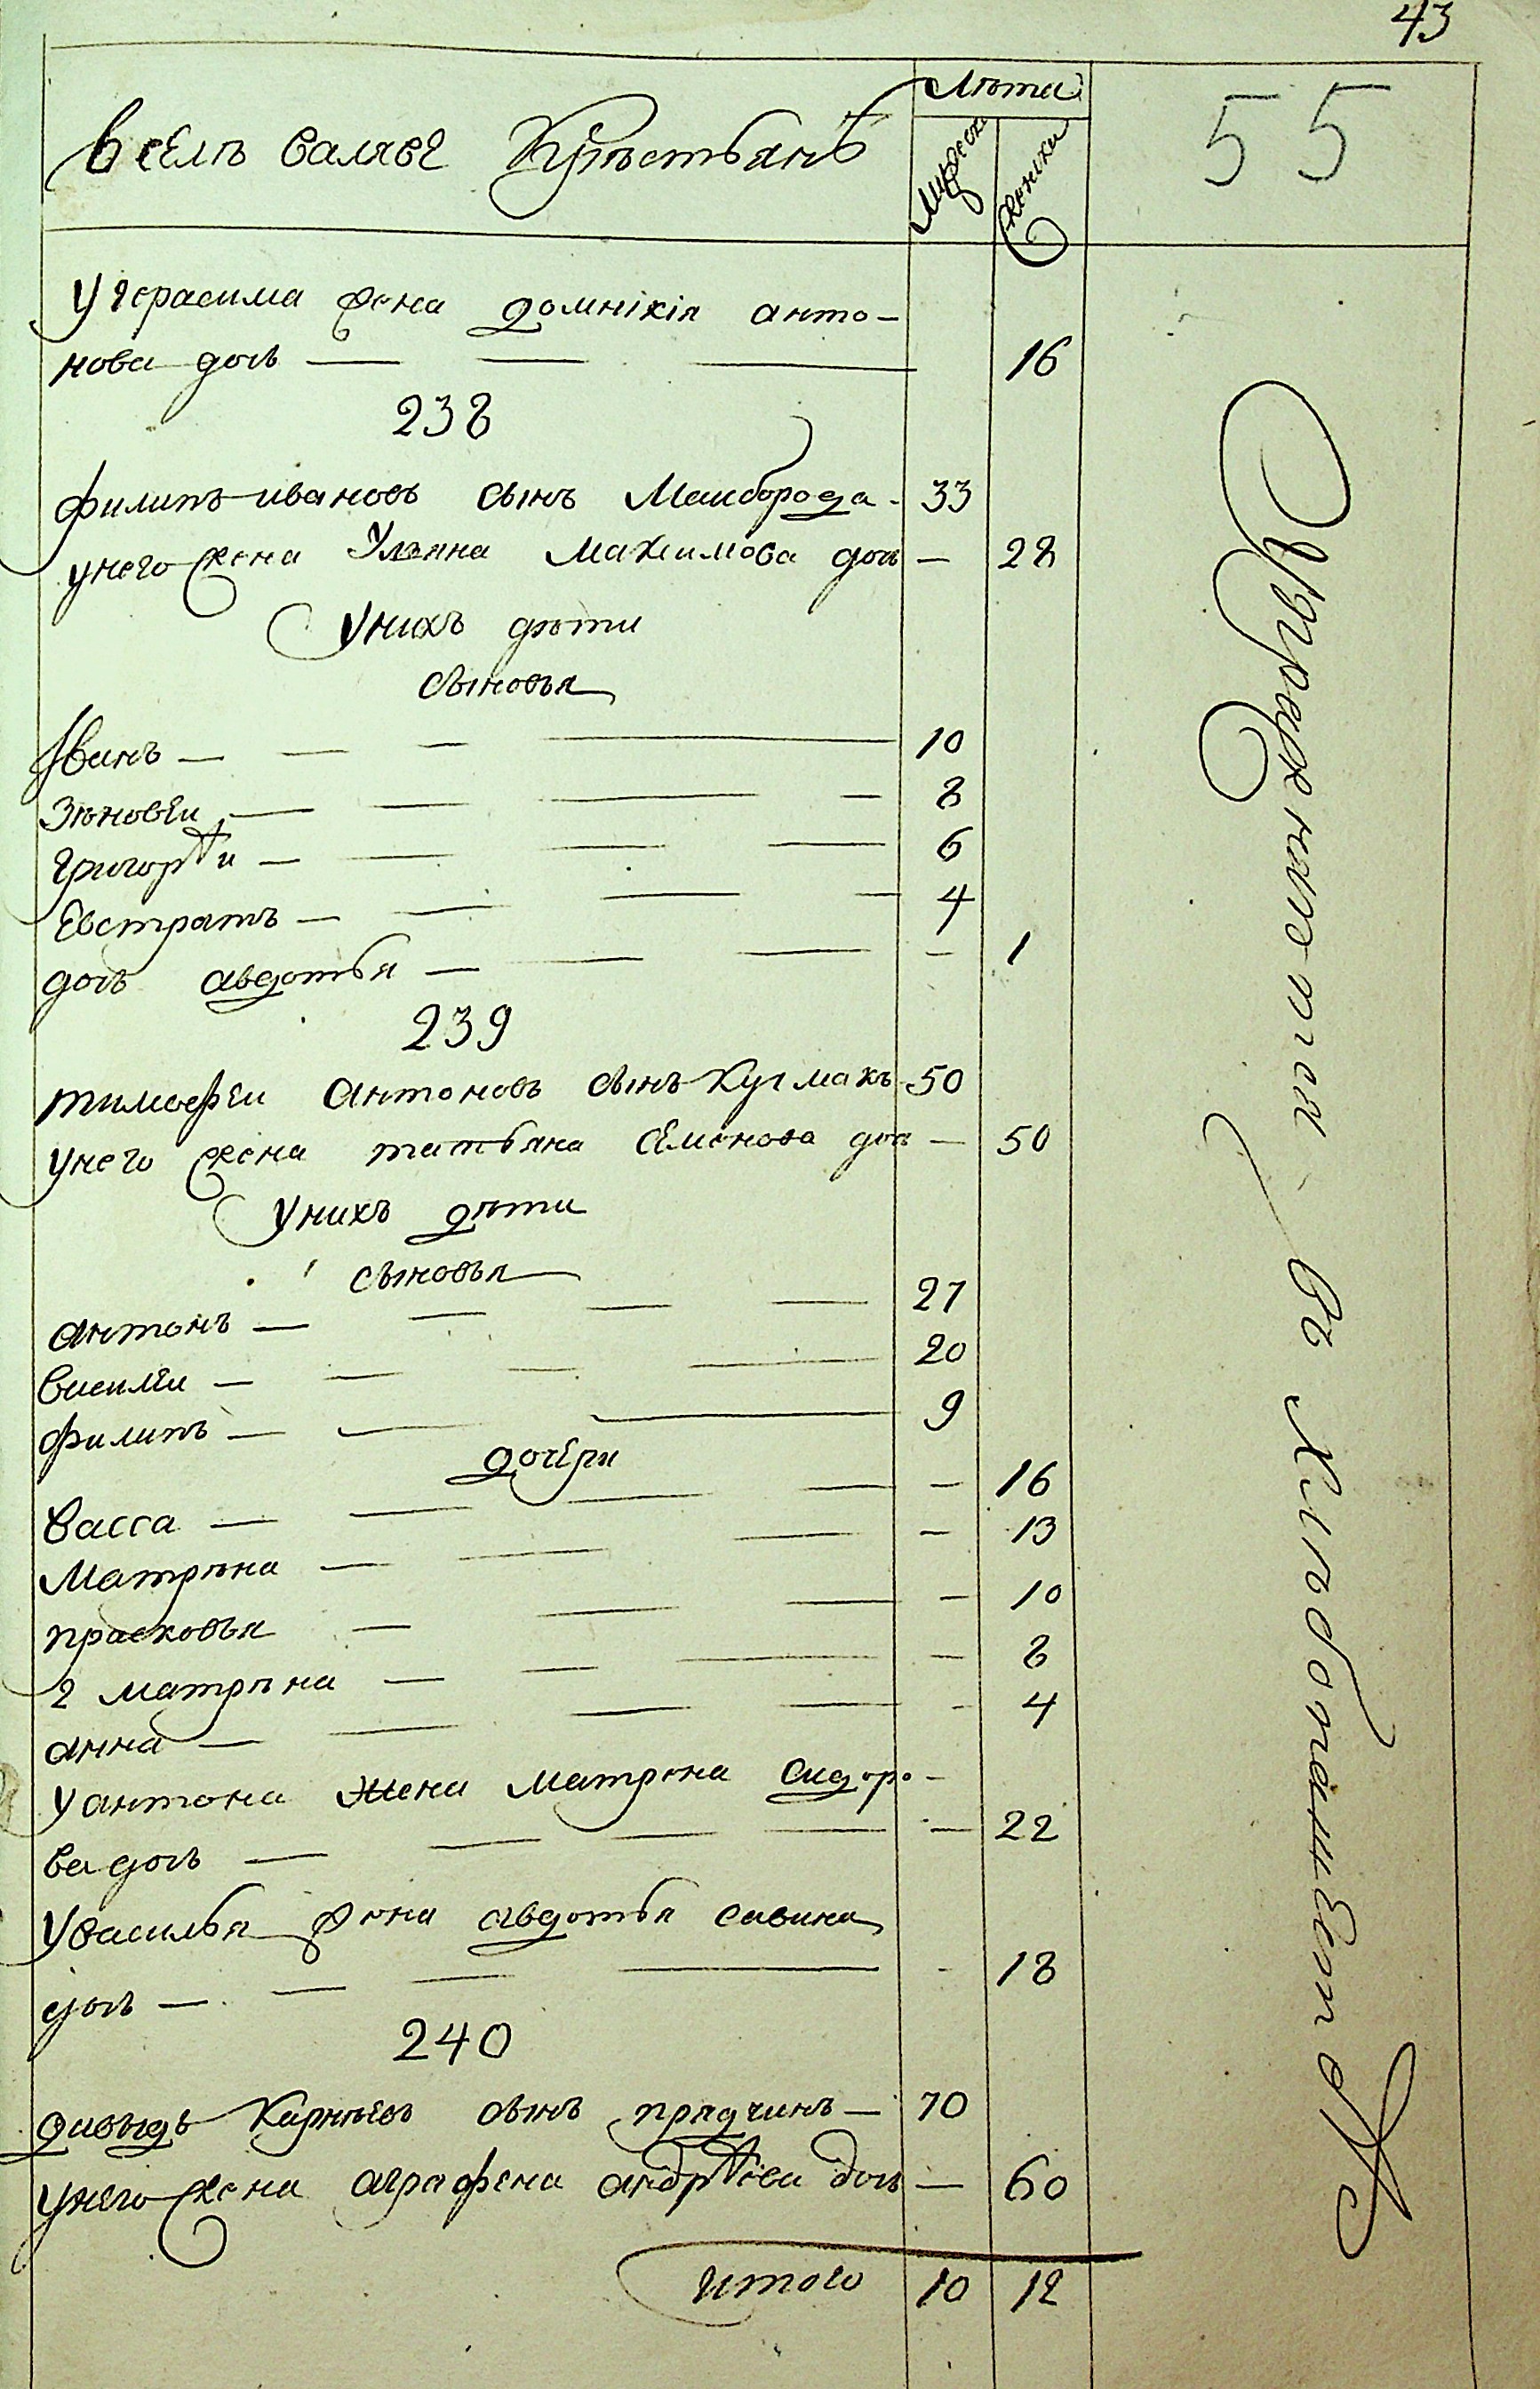 43
55
Лѣта
Мужеска
Женска
В селѣ Салаве Крѣстьянъ
У герасима жена домнікія анто-
нова дочь — 16
238
филипъ ивановъ сынъ Маиборода - 33
у него жена Ульяна Махимова дочь — 28
У нихъ дѣти
сыновья
Иванъ — 10
Зѣновеи — 8
Григорѣи — 6
Евстратъ — 4
дочь авдотья — 1
239
тимофеи антоновъ сынъ Кулмакъ 50
у него жена татьяна Семенова дочь — 50
У нихъ дѣти
сыновья
антонъ — 27
Василеи — 20
филипъ — 9
дочери
Васса — 16
Матрѣна — 13
прасковья — 10
2 матрѣна — 8
анна — 4
У антона жена Матрена Сидоро-
ва дочь — 22
У Василья жена авдотья савина
дочь — 18
240
давыдъ Карнѣевъ сынъ прядчинъ — 70
у него жена аграфена андрѣева дочь — 60
Итого 10 12